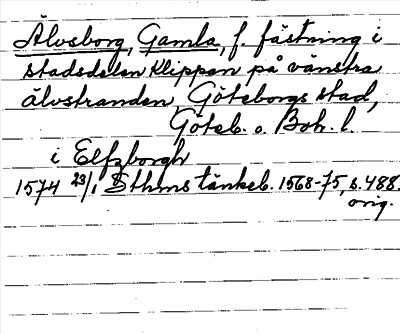 Älvsborg, Gamla, f. fästning i
stadsdelen Klippan på vänstra
älvstranden, Göteborgs stad,
Göteb. o. Boh. l.
i Elfzborgh
1574 23/1 Sthms tänkeb. 1568-75, s. 488.
orig.